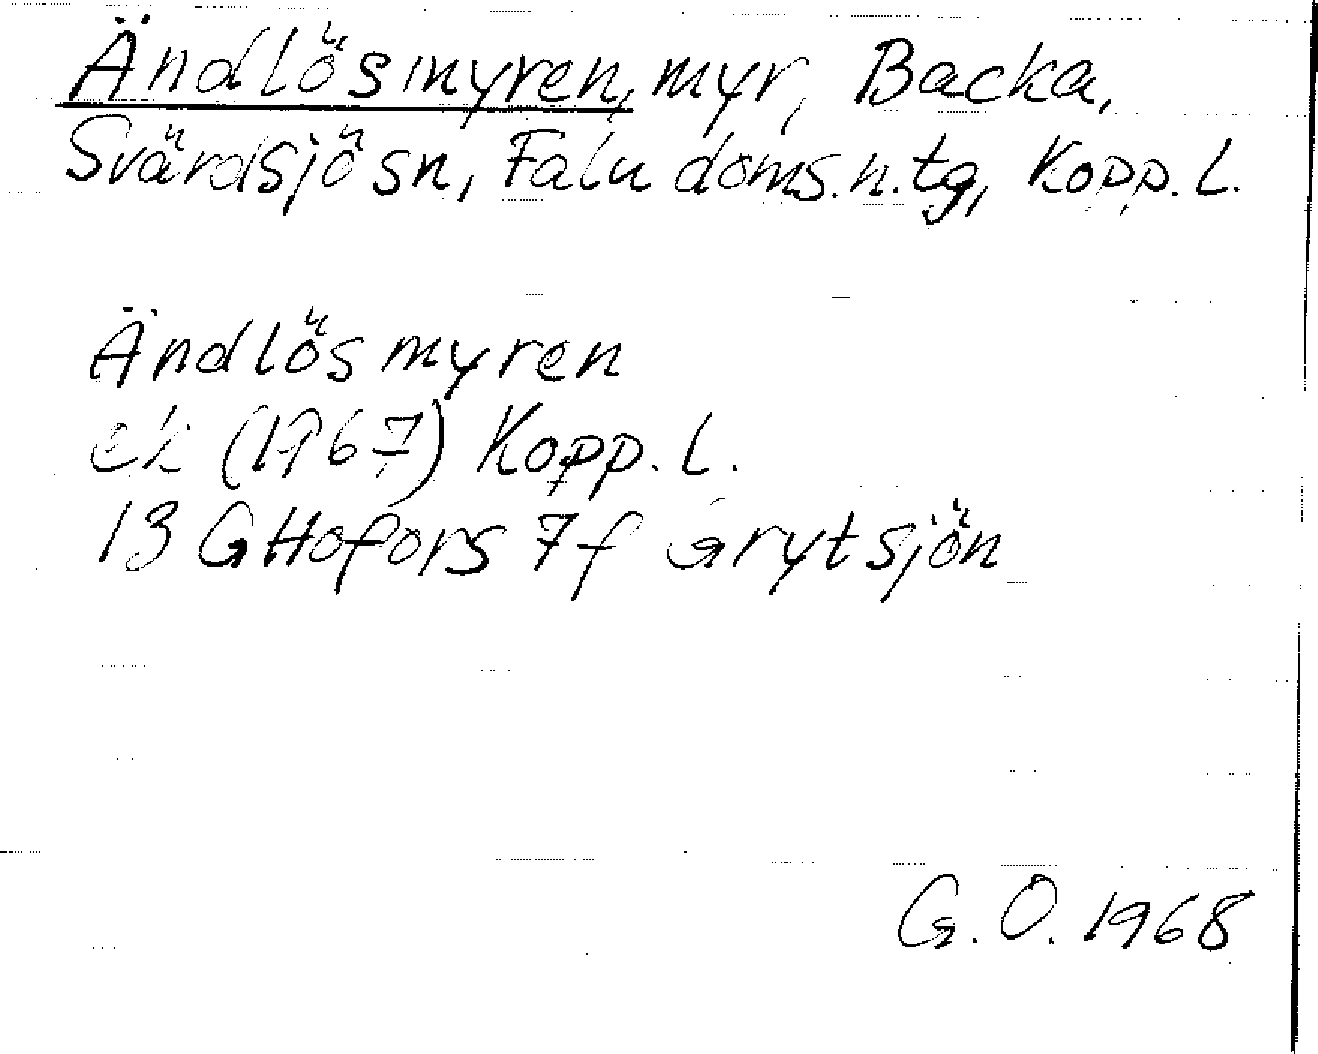 Ändlösmyren, myr, Backa,
Svärdsjö sn, Falu doms.n.tg, Kopp. L.
Ändlösmyren
ek (1967) Kopp. L.
13 G Hofors 7 f Grytsjön
G. O. 1968